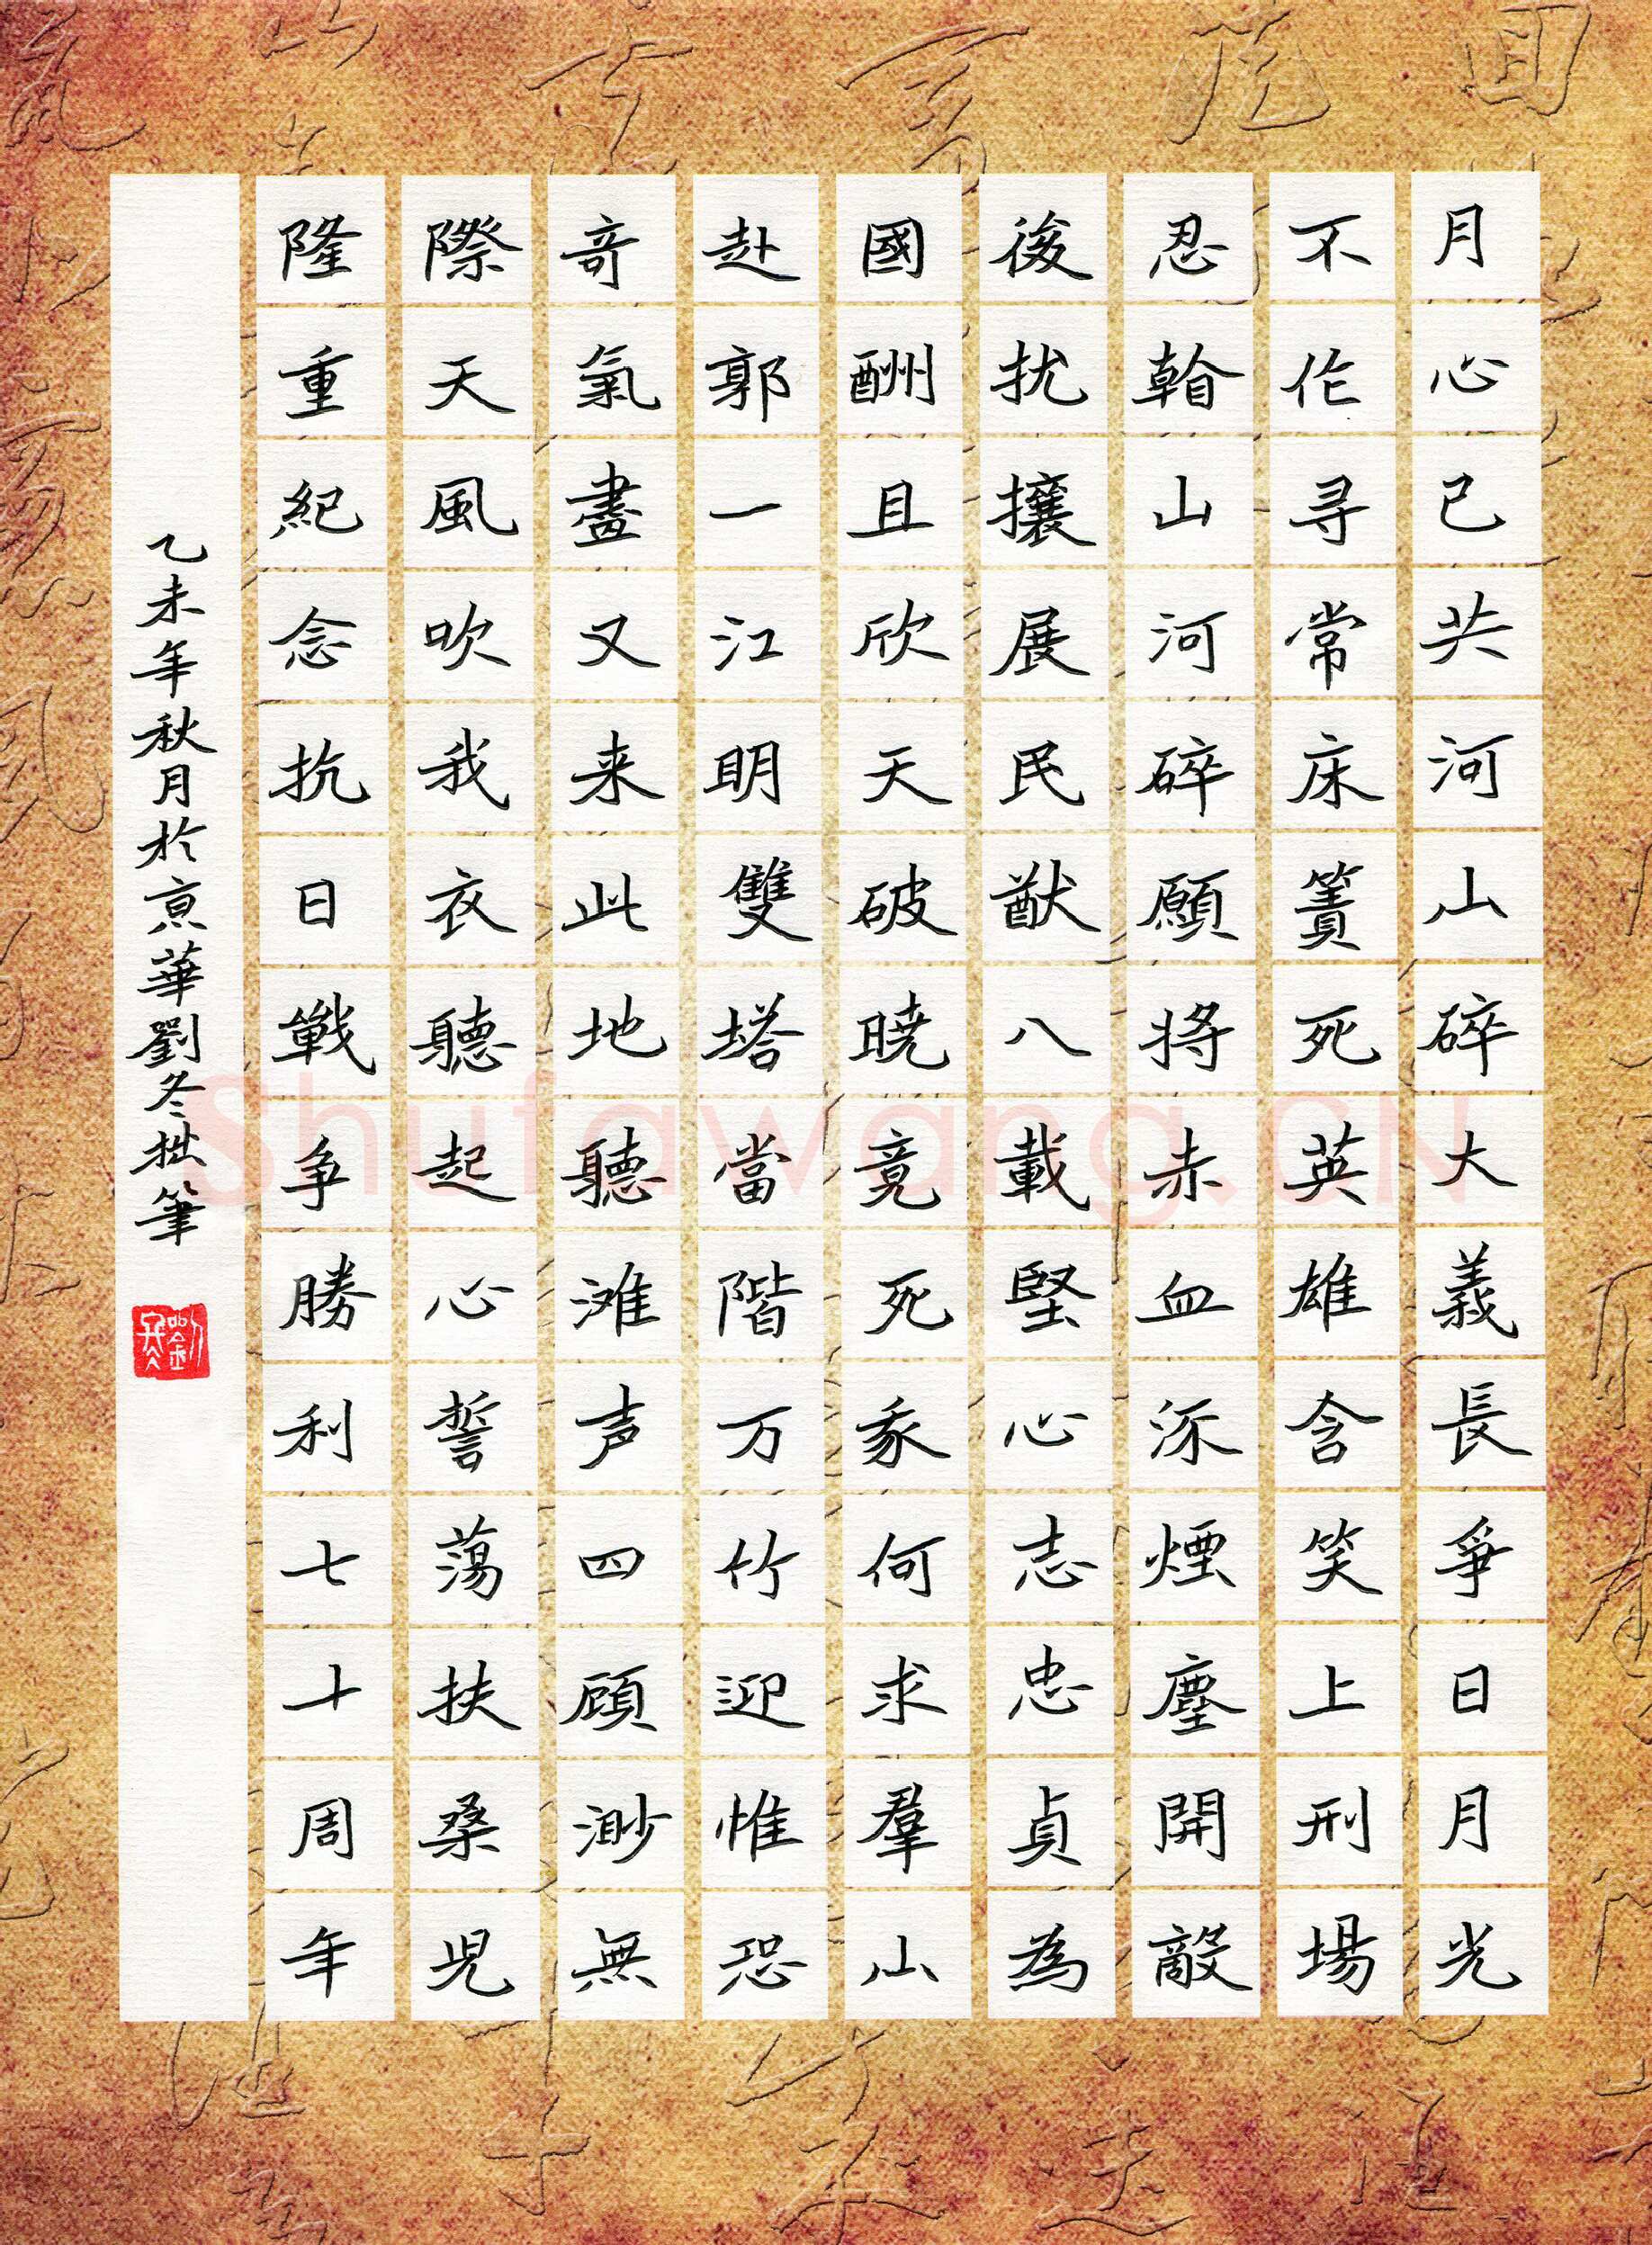 月心已共河山碎大義長爭日月光
不作寻常床簀死英雄含笑上刑場
忍看山河碎願將赤血流煙塵開敵
後扰攘展民猷八載堅心志忠貞為
國酬且欣天破曉竟死我何求羣山
赴郭一江明雙塔當階万竹迎惟恐
奇氣盡又来此地聽滩声四顧渺無
際天風吹我衣聽起心誓蕩扶桑児
隆重紀念抗日戰争勝利七十周年
乙未年秋月於京華劉冬拙筆
Shufawang.CN